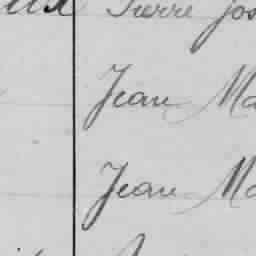 Pierre Jos
Jean Ma
Jean Ma